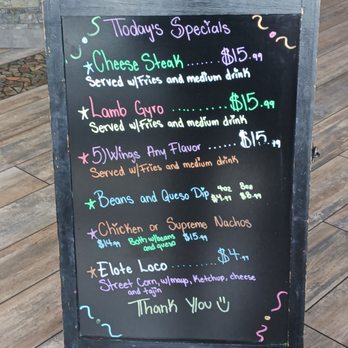 Today's Specials
Cheese Steak ...... $15.99
Served w/Fries and medium drink
Lamb Gyro ......... $15.99
Served w/Fries and medium drink
5) Wings Any Flavor ..... $15.99
Served w/Fries and medium drink
Beans and Queso Dip 4oz $4.99 8oz $8.99
Chicken or Supreme Nachos
$14.99 Both w/beans and queso $15.99
Elote Loco ......... $4.99
Street Corn, w/mayo, Ketchup, cheese
and tajin
Thank You